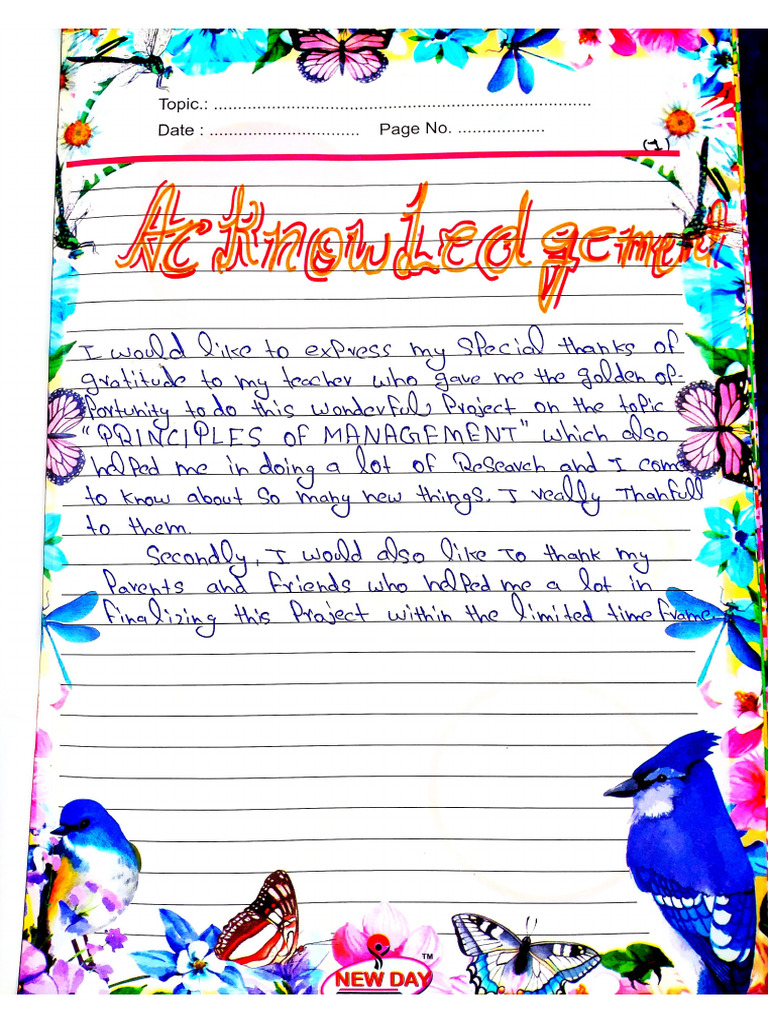 Topic.: ................................................................................
Date : ............................... Page No. ..................
(1)
Acknowledgement
I would like to express my special thanks of
gratitude to my teacher who gave me the golden op-
portunity to do this wonderful Project on the topic
"PRINCIPLES OF MANAGEMENT" which also
helped me in doing a lot of Research and I come
to know about so many new things. I really Thanfull
to them.
Secondly, I would also like To thank my
Parents and friends who helped me a lot in
finalizing this Project within the limited time frame.
NEW DAY
TM